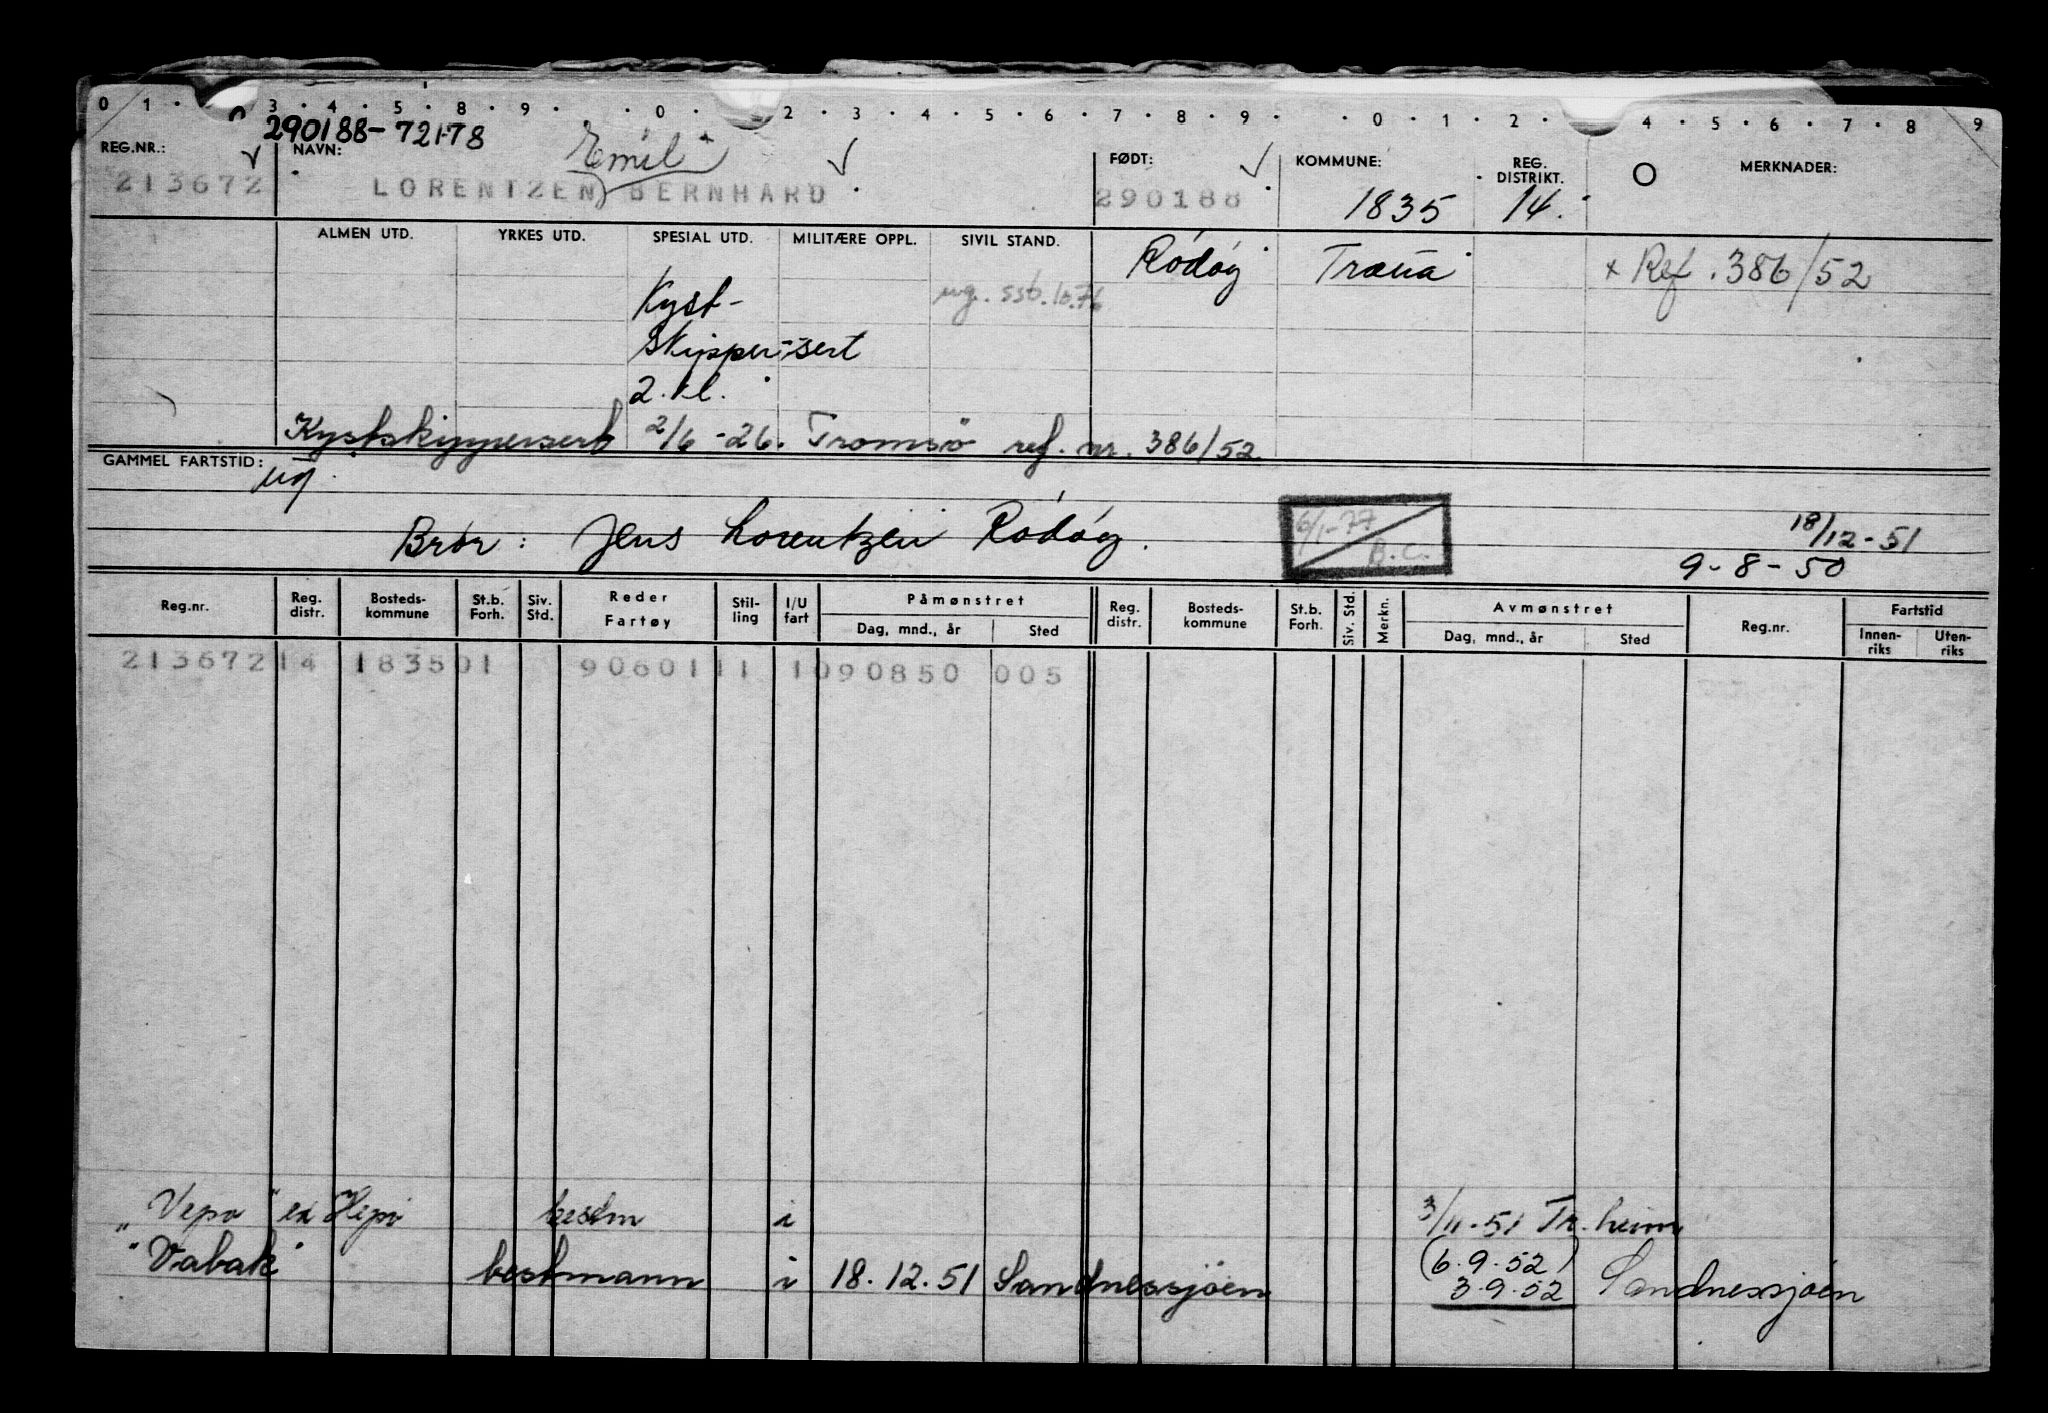 0 1 . 3 . 4 . 5 . 8 . 9 . . 0 . 2 . 3 . 4 . 5 . 6 . 7 . 8 . 9 . . 0 . 1 . 2 . 4 . 5 . 6 . 7 . 8 9
290188-72178
REG.NR.: NAVN: Emil FØDT: KOMMUNE: REG. DISTRIKT. MERKNADER:
213672 LORENTZEN BERNHARD 290188 1835 14.
ALMEN UTD. YRKES UTD. SPESIAL UTD. MILITÆRE OPPL. SIVIL STAND. Rödöy Træna x Ref. 386/52
Kyst- ug. ssb. 10.76
Skipper-sert
2. kl.
Kystskippersert 2/6-26. Tromsö ref. nr. 386/52.
GAMMEL FARTSTID: ug.
Bror: Jens Lorentzen Rödöy. 6/1-77 B.C. 18/12-51
9-8-50
Reg.nr. Reg. distr. Bosteds-kommune St.b. Forh. Siv. Std. Reder Fartøy Stil-ling I/U fart Påmønstret Dag, mnd., år Sted Reg. distr. Bosteds-kommune St.b. Forh. Siv. Std. Merkn. Avmønstret Dag, mnd., år Sted Reg.nr. Fartstid Innen-riks Uten-riks
213672 14 1835 01 90601 11 1 090850 005
"Vepo" ex Hepo bestm i 3/11-51 Tr.heim
"Vabak" bestmann i 18.12.51 Sandnessjöen (6.9.52)
3.9.52 Sandnessjöen